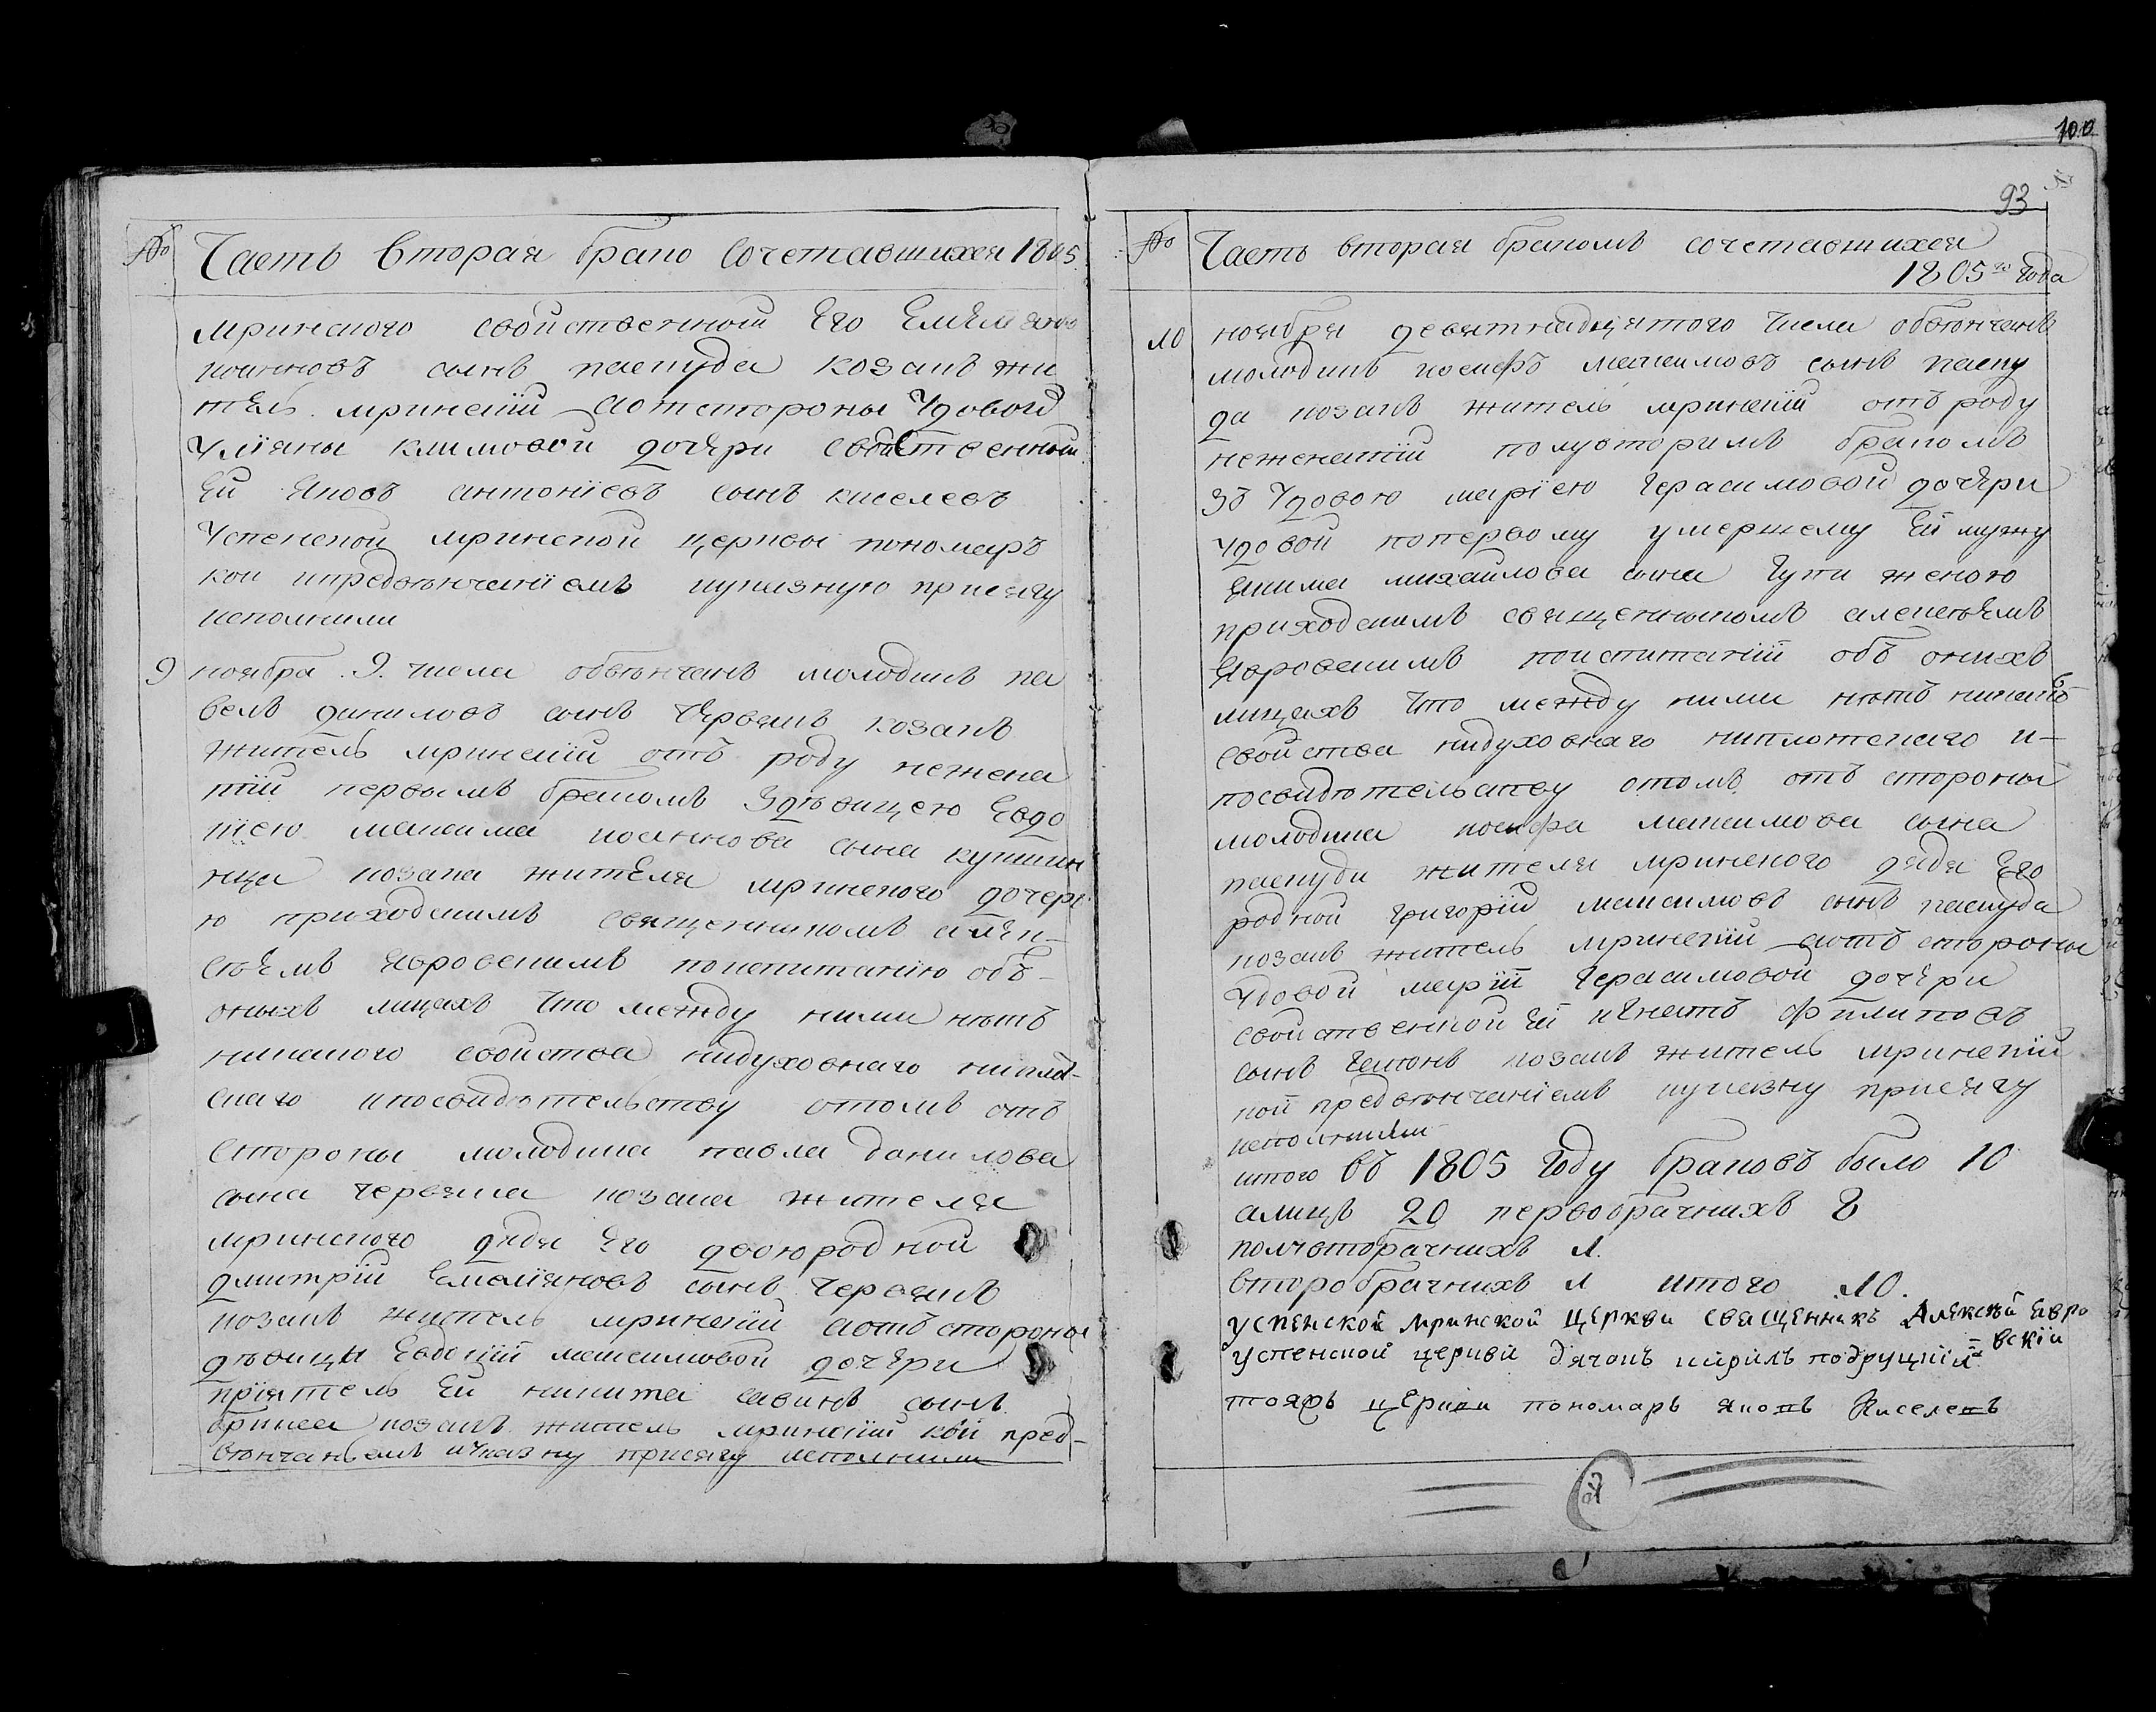 № Часть вторая брако сочетавшихся 1805
мринского свойственный его Емельянъ
иоанновъ сынъ паскуда козакъ жи
тель мринский аотстороны Удовой
Улїяны климовой дочери свойственный
ей Яковъ антонїевъ сынъ киселевъ
Успенской мринской церкви пономаръ
кои ипредвѣнчанїемъ иуказную присягу
исполнили
9 ноября 9. числа обвѣнчанъ молодикъ па
велъ даниловъ сынъ Червякъ козакъ
житель мринскїй отъ роду неженa
тїй первымъ бракомъ Здѣвицею Евдо
кїею максима иоаннова сына
козака жителя мринского дочерь
ю приходскимъ священникомъ алек-
сѣемъ Явровскимъ поиспитанїю объ-
оныхъ лицахъ что между ними нѣтъ
никакого свойства нидуховнаго ниплот-
скаго ипосвидѣтельству отомъ отъ
стороны молодика павла данилова
сына червяка козака жителя
мринского дядя его двоюродной
дмитрїй Емелїяновъ сынъ Червякъ
козакъ житель мринскїй аотъ стороны
дѣвици Евдокїй максимовой дочери
прїятель ей никита савинъ сынъ
козакъ житель мринскїй кои пред-
вѣнчаньемъ иуказну присягу исполнили
100
93
№ Часть вторая бракомъ сочетавшихся
1805го года
10 ноября девятнадцятого числа обвѣнчанъ
молодикъ иосифъ максимовъ сынъ паску
да козакъ житель мринскїй отъ роду
неженатїй полувторимъ бракомъ
зъ Удовою марїею Герасимовой дочери
удовой поперьвому умершему ей мужу
Якима михайлова сына женою
приходскимъ священникомъ алексѣемъ
Явровскимъ поиспитанїй объ онихъ
лицахъ что между ними нѣтъ никаго
свойства нидуховнаго ниплотскаго и-
посвидѣтельству отомъ отъ стороны
молодика иосифа максимова сына
паскуди жителя мринского дядя его
родной григорїй максимовъ сынъ паскуда
козакъ житель мринскїй аотъ стороны
Удовой марїй Герасимовой дочери
свойственной ей игнатъ филиповъ
сынъ козакъ житель мринскїй
кои предвѣнчанїемъ иуказну присягу
исполнили
итого въ 1805 году браковъ было 10
алицъ 20 первобрачнихъ 8
полувторачнихъ 1.
второбрачнихъ 1 итого 10.
успенской мринской церкви священникъ Алексѣй Явро
вскїй
успенской церкви дячокъ кирилъ подруцкїй
тояжъ церкви пономаръ яковъ Киселевъ